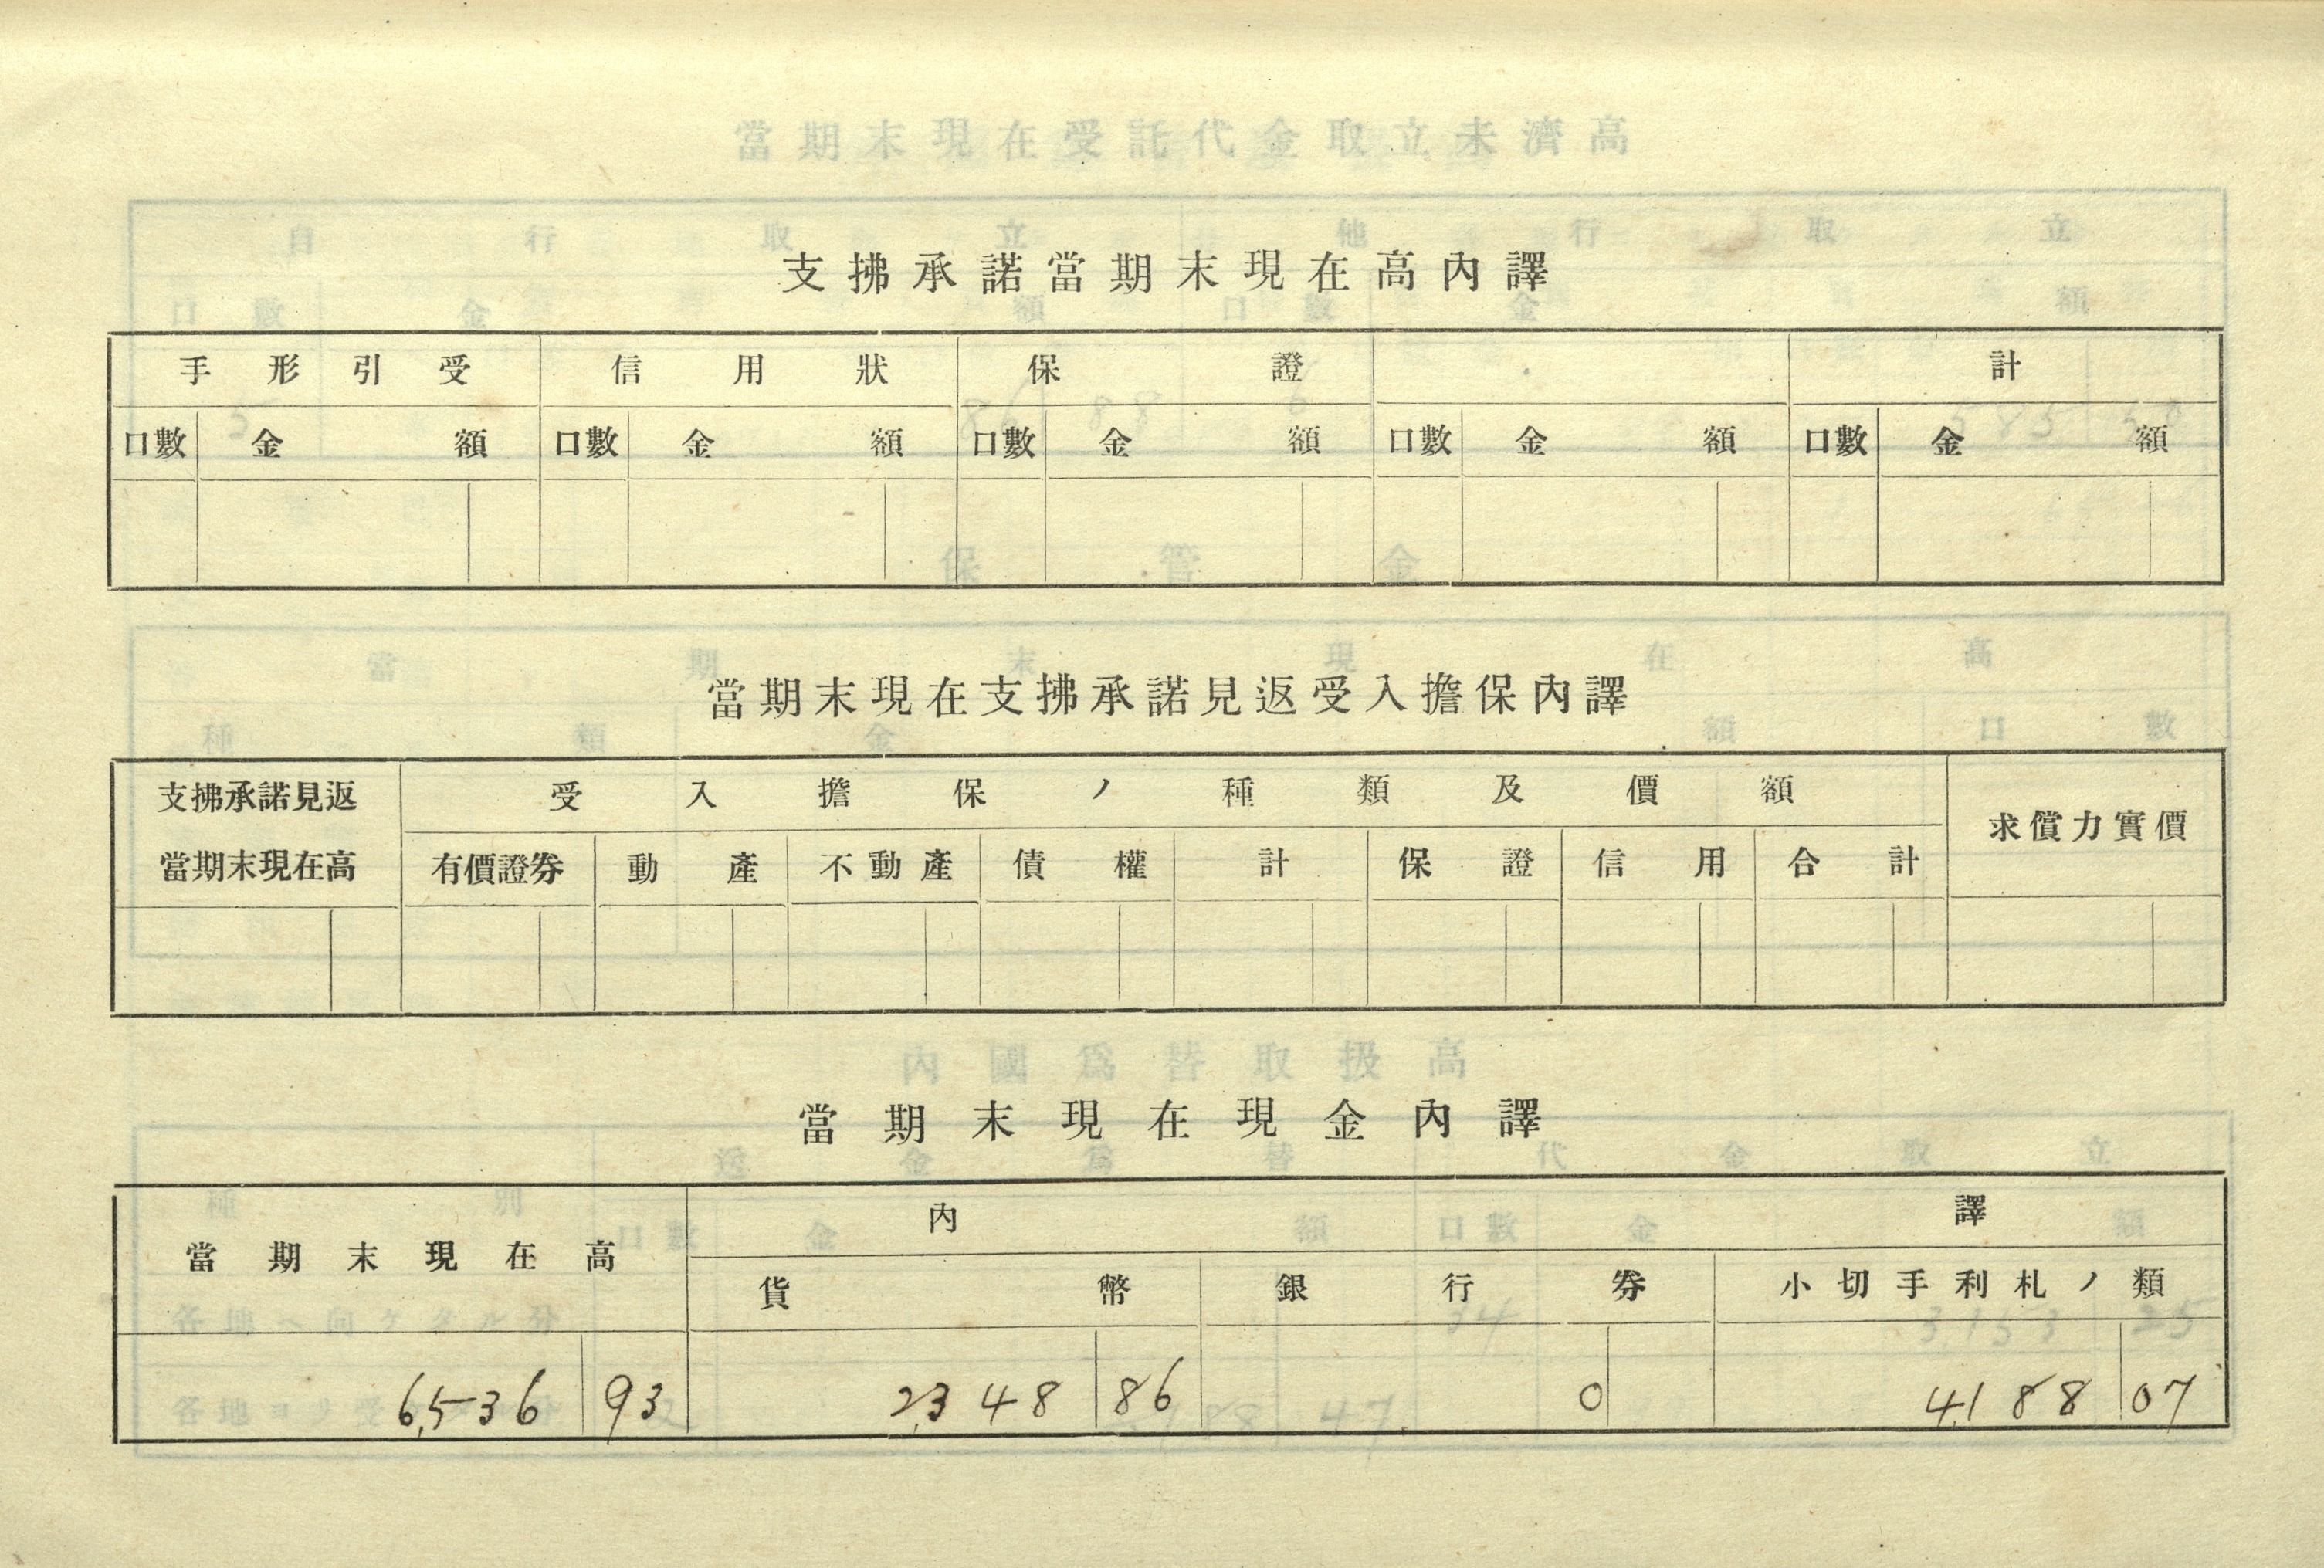 支拂承諾當期末現在高內譯
手形引受 信用狀 保證 計
口數 金額 口數 金額 口數 金額 口數 金額 口數 金額
當期末現在支拂承諾見返受入擔保內譯
支拂承諾見返當期末現在高 受入擔保ノ種類及價額 求償力實價
有價證券 動產 不動產 債權 計 保證 信用 合計
當期末現在現金內譯
當期末現在高 內譯
貨幣 銀行券 小切手利札ノ類
6,536 93 2,348 86 0 4,188 07